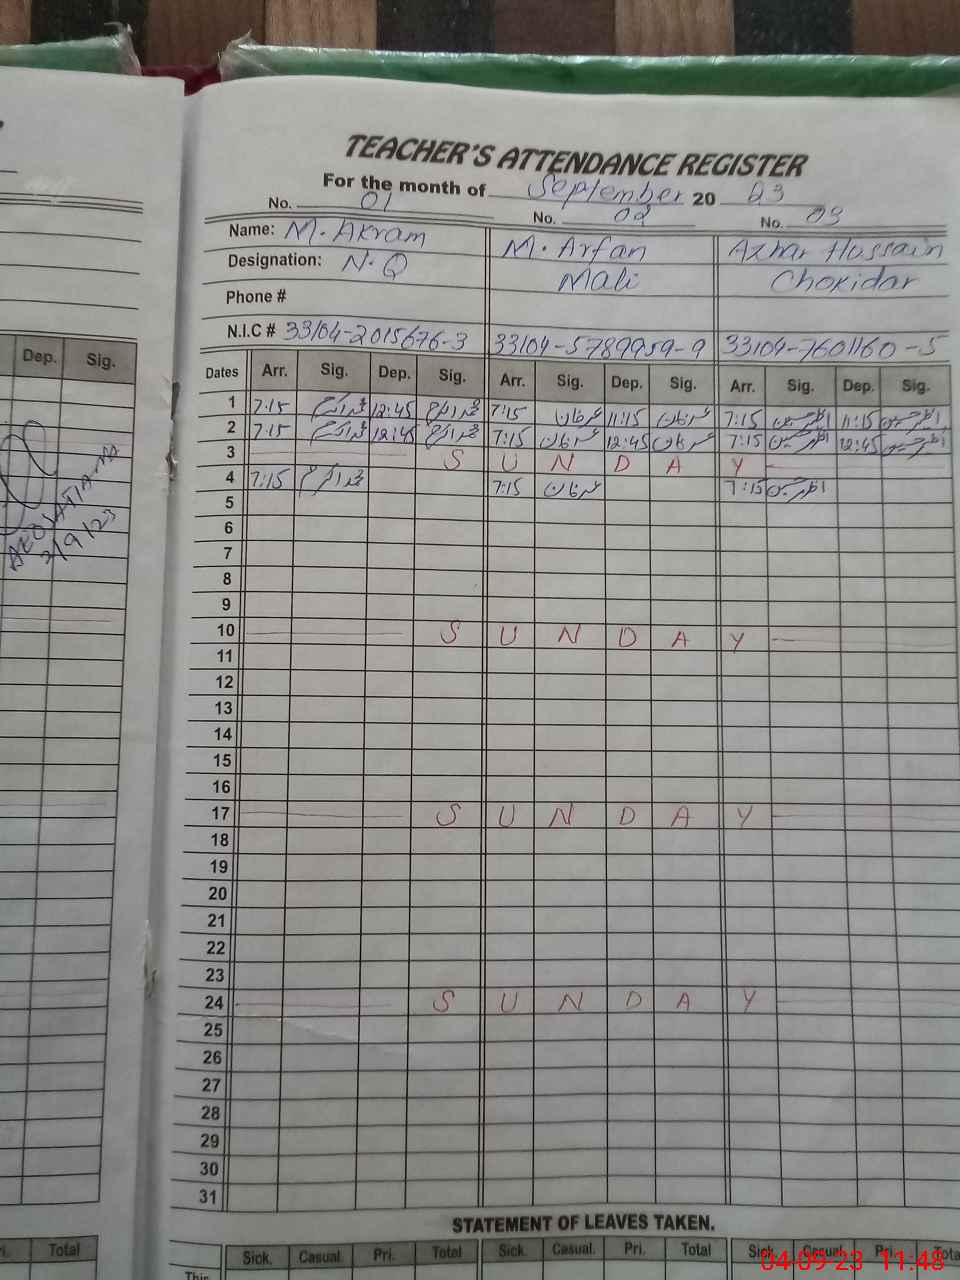 TEACHER'S ATTENDANCE REGISTER
For the month of September 20 23
No. 01 No. 02 No. 03
Name: M. Akram M. Arfan Azhar Hussain
Designation: N.Q Mali Chokidar
Phone #
N.I.C # 33104-2015676-3 33104-5789959-9 33104-7601160-5
Dep. Sig.
Dates Arr. Sig. Dep. Sig. Arr. Sig. Dep. Sig. Arr. Sig. Dep. Sig.
1 7:15 محمد اکرم 12:45 محمد اکرم 7:15 عرفان 11:15 عرفان 7:15 اظہر حسین 11:15 اظہر حسین
2 7:15 محمد اکرم 12:45 محمد اکرم 7:15 عرفان 12:45 عرفان 7:15 اظہر حسین 12:45 اظہر حسین
3 S U N D A Y
4 7:15 محمد اکرم 7:15 عرفان 7:15 اظہر حسین
5
6
7
8
9
10 S U N D A Y
11
12
13
14
15
16
17 S U N D A Y
18
19
20
21
22
23
24 S U N D A Y
25
26
27
28
29
30
31
STATEMENT OF LEAVES TAKEN.
Total Sick. Casual. Pri. Total Sick. Casual. Pri. Total Sick. Casual. Pri. Tota
This
2/9/23
04-09-23 11:48